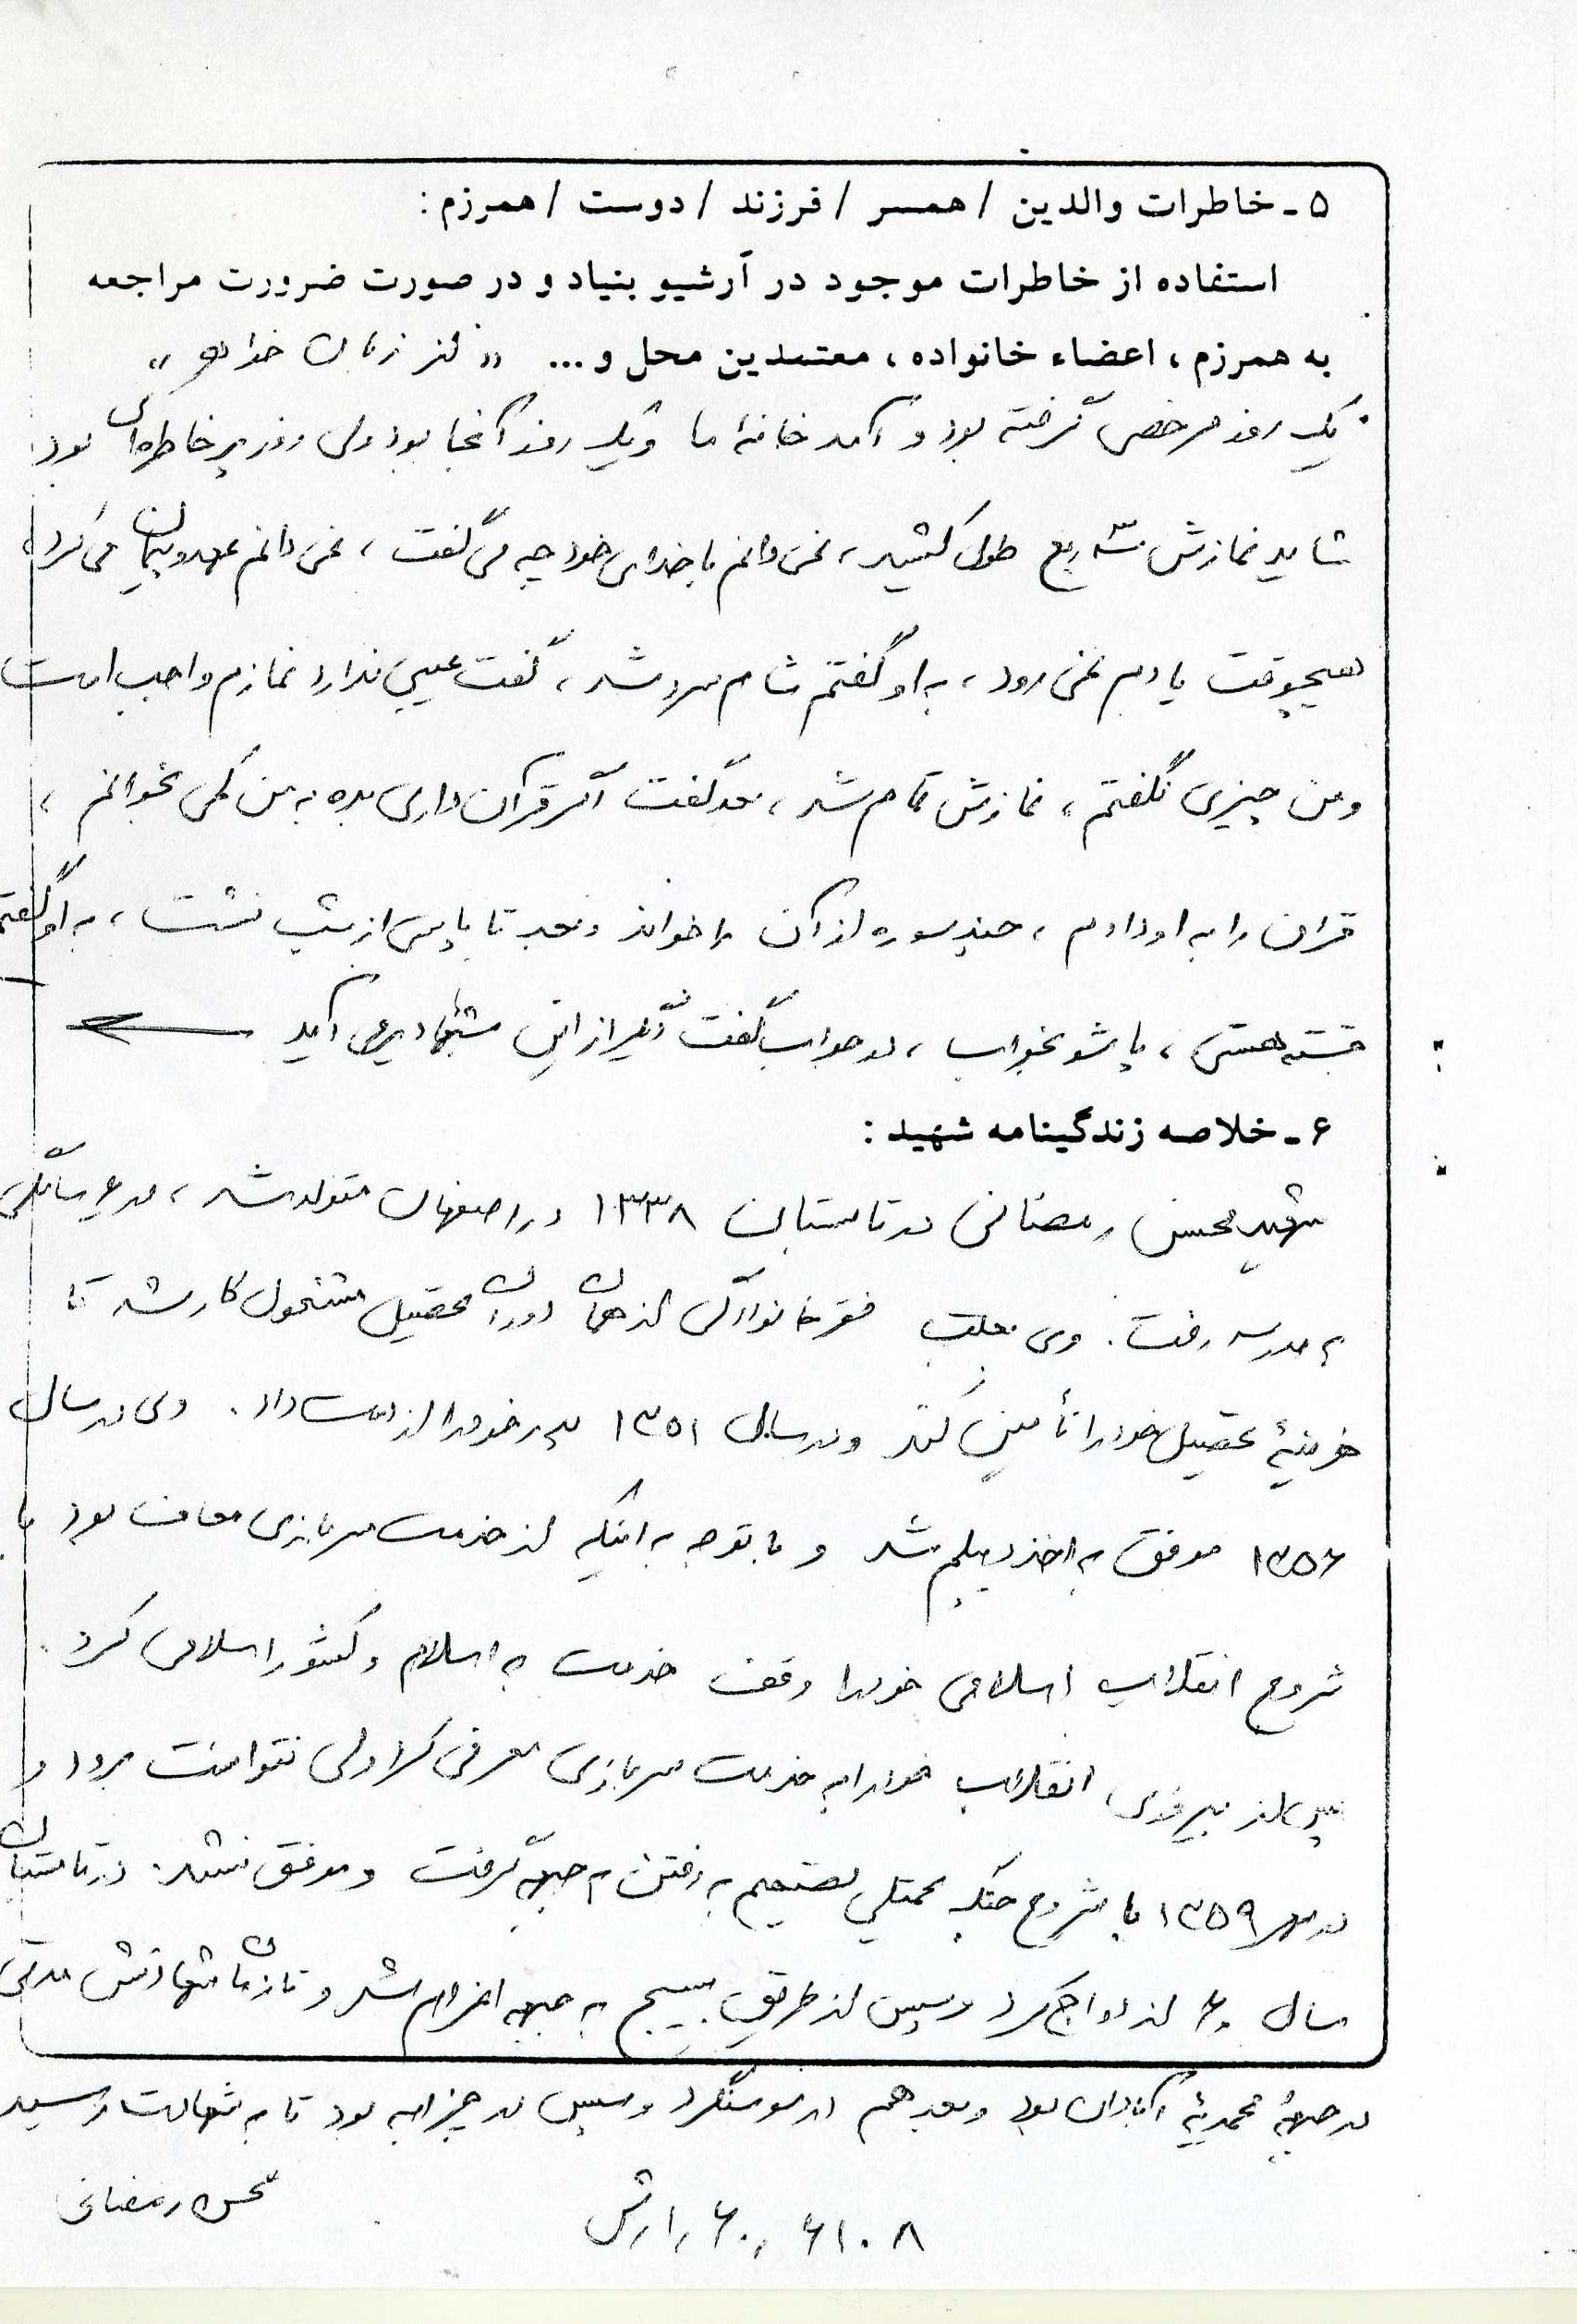 ۵ - خاطرات والدین / همسر / فرزند / دوست / همرزم :
استفاده از خاطرات موجود در آرشیو بنیاد و در صورت ضرورت مراجعه
به همرزم ، اعضاء خانواده ، معتمدین محل و ... « از زبان خواهر »
یک روز مرخصی گرفته بود و آمد خانۀ ما و یک روز آنجا بود ولی روز پر خاطره‌ای بود
شاید نمازش سه ربع طول کشید ، نمی دانم با خدای خود چه می گفت ، نمی دانم عهد و پیمان می کرد
هیچوقت یادم نمی رود ، به او گفتم شام سرد شد ، گفت عیبی ندارد نمازم واجب است
و من چیزی نگفتم ، نمازش تمام شد ، بعد گفت اگر قرآن داری بده به من کمی بخوانم ،
قران را به او دادم ، چند سوره از آن را خواند و بعد تا پاسی از شب نشست ، به او گفتم
خسته هستی ، پا شو بخواب ، در جواب گفت دیگر از این شبها دیر می آید
۶ - خلاصه زندگینامه شهید :
شهید محسن رمضانی در تابستان ۱۳۳۸ در اصفهان متولد شد ، در ۶ سالگی
به مدرسه رفت . وی بعلت فقر خانوادگی از همان دوران تحصیل مشغول کار شد تا
هزینۀ تحصیل خود را تأمین کند و در سال ۱۳۵۱ پدر خود را از دست داد . وی در سال
۱۳۵۶ موفق به اخذ دیپلم شد و با توجه به اینکه از خدمت سربازی معاف بود با
شروع انقلاب اسلامی خود را وقف خدمت به اسلام و کشور اسلامی کرد .
پس از پیروزی انقلاب خود را به خدمت سربازی معرفی کرد ولی نتوانست برود و
در مهر ۱۳۵۹ با شروع جنگ تحمیلی تصمیم به رفتن به جبهه گرفت و موفق نشد . در تابستان
سال ۶۰ ازدواج کرد و سپس از طریق بسیج به جبهه اعزام شد و تا زمان شهادتش مدتی
در جبهۀ محمدیۀ آبادان بود و بعد هم در سوسنگرد و سپس در چزابه بود تا به شهادت رسید
محسن رمضانی
۶۱۰۸